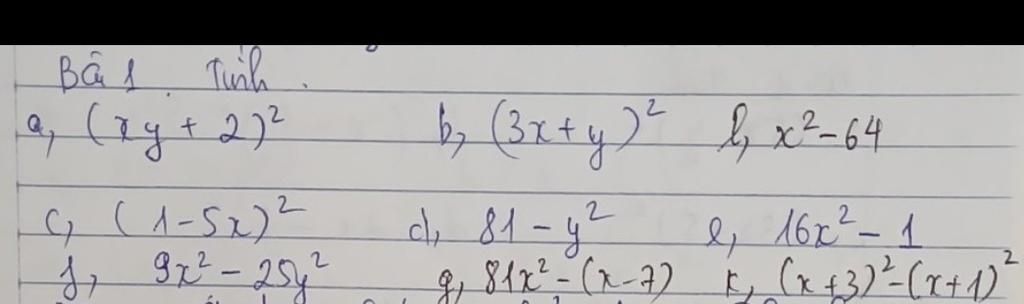 Bài 1. Tính.
a, (xy + 2)² b, (3x + y)² l, x² - 64
c, (1 - 5x)² d, 81 - y² e, 16x² - 1
f, 9x² - 25y² g, 81x² - (x - 7) k, (x + 3)² - (x + 1)²